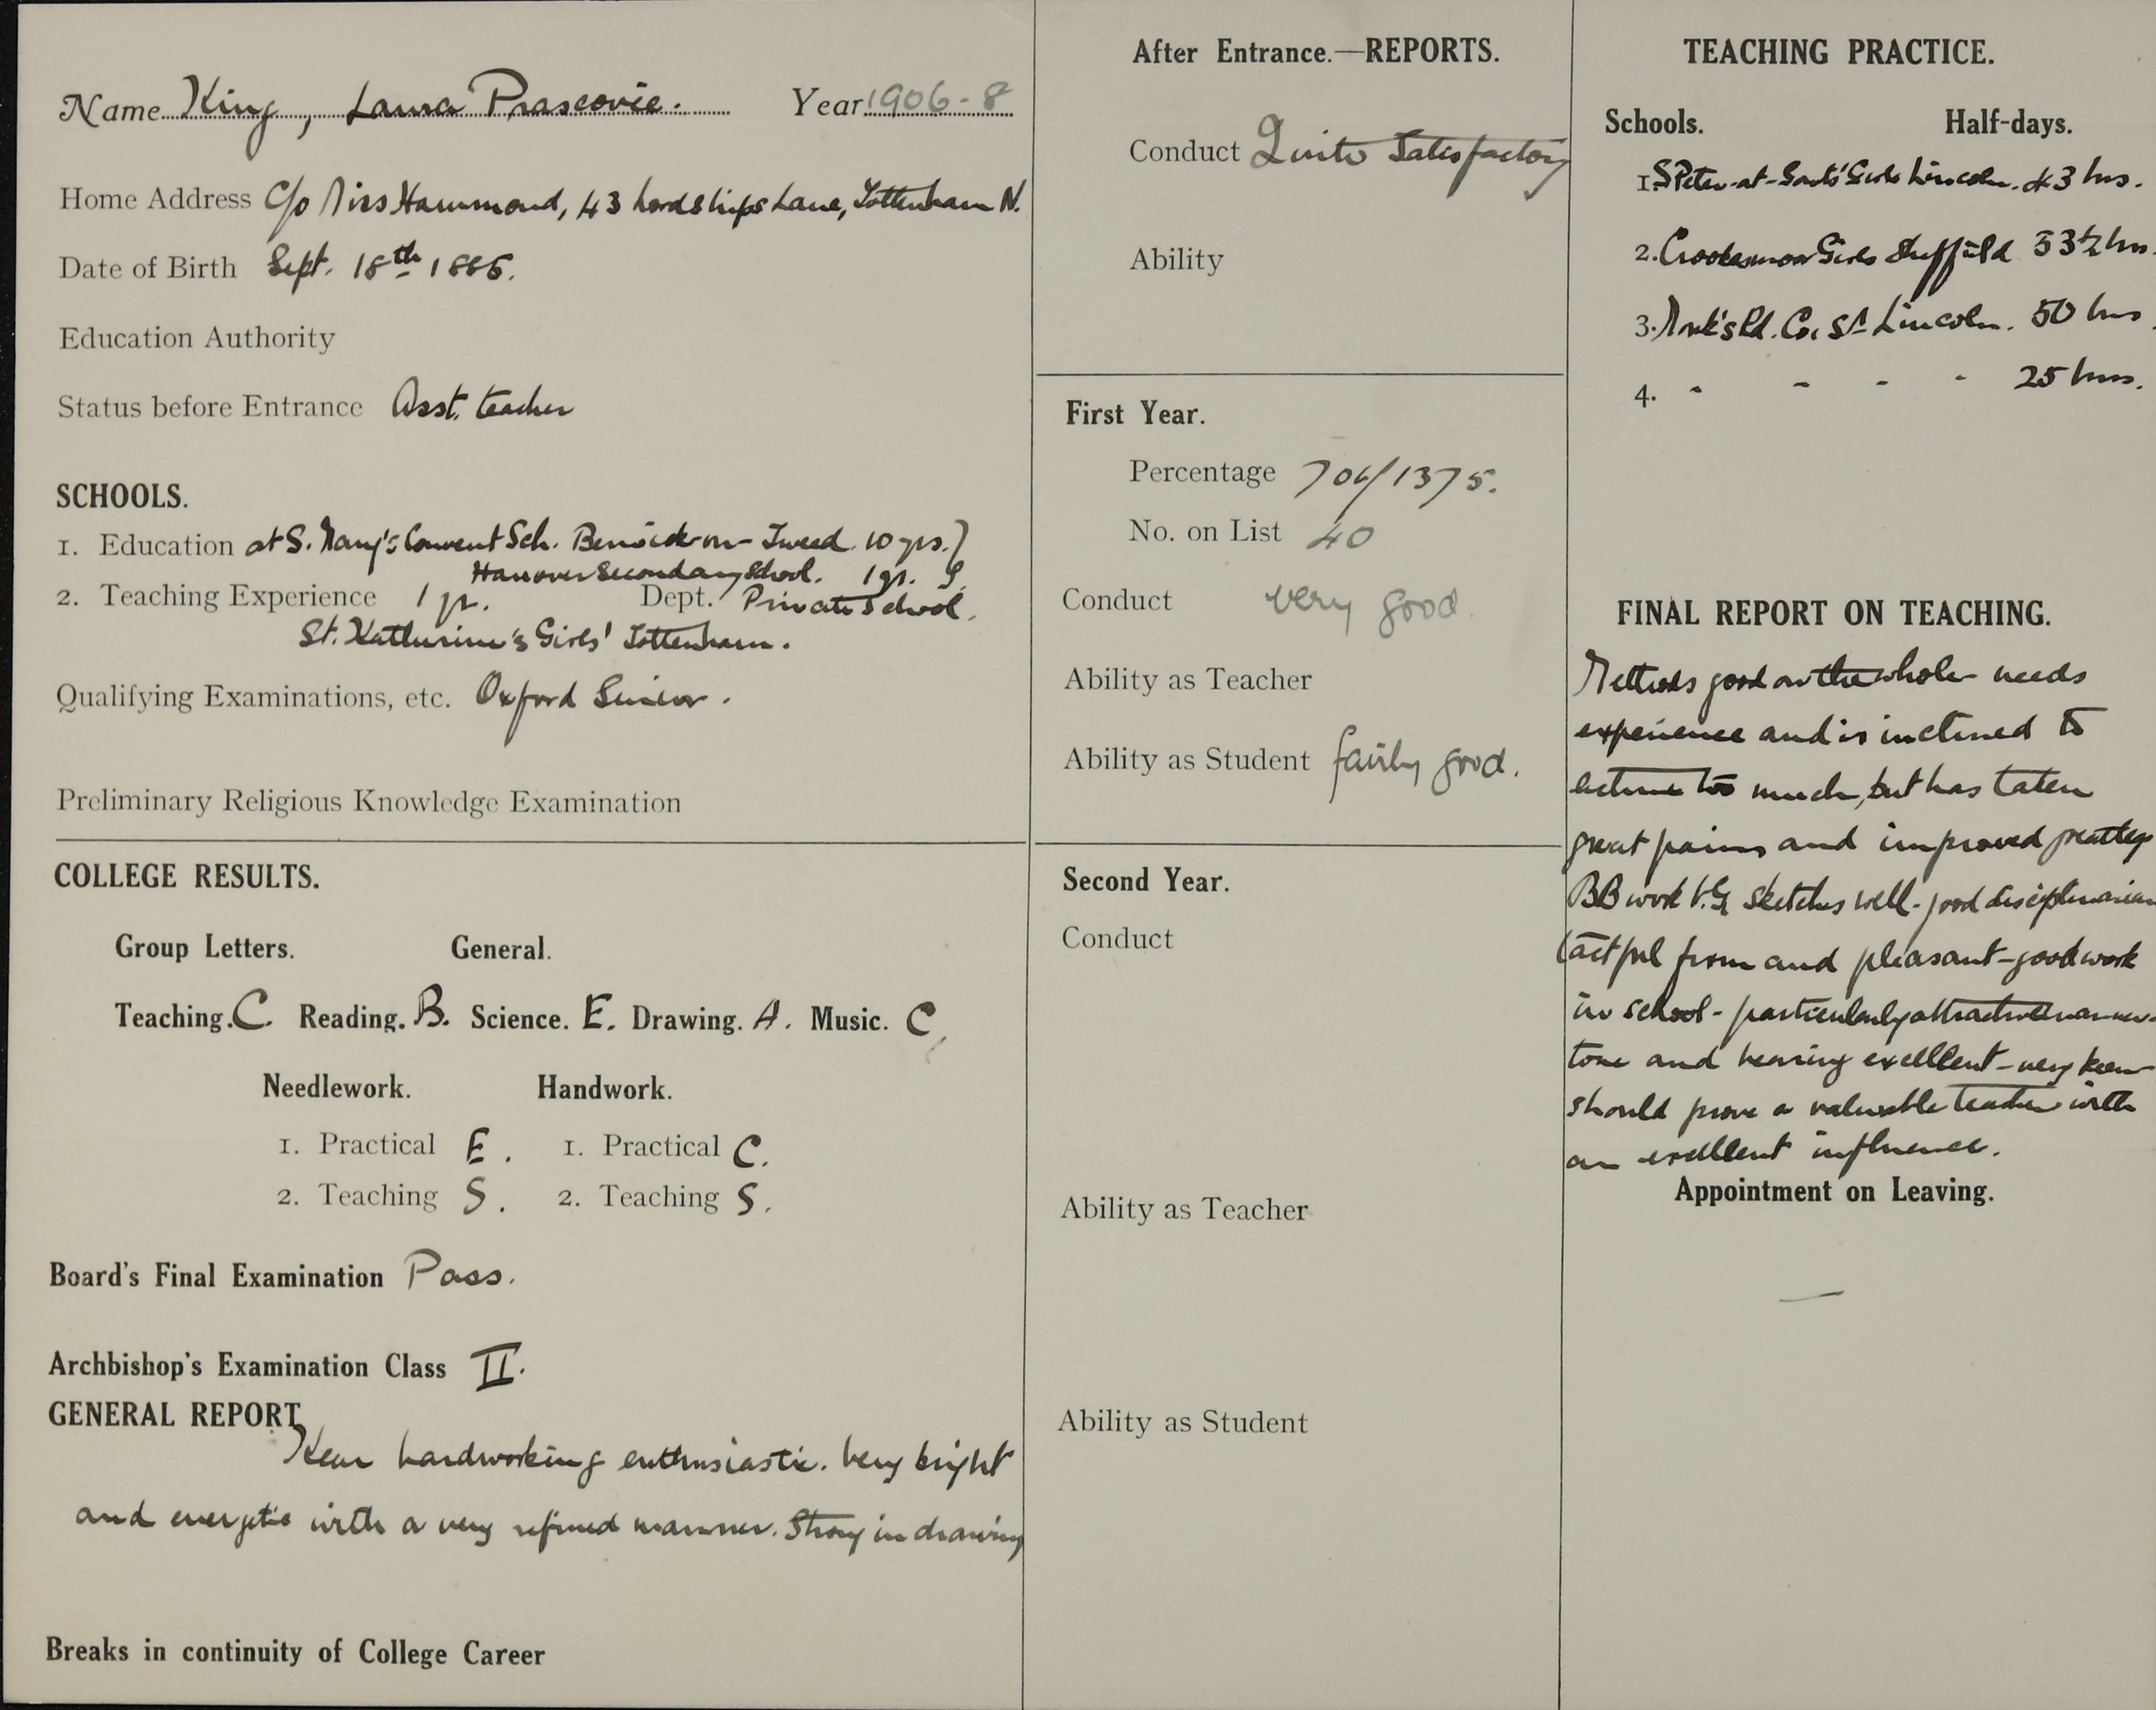 Name King, Laura Prascovie. Year 1906-8
Home Address C/o Miss Hammond, 43 Lordships Lane, Tottenham N.
Date of Birth Sept. 18th 1886.
Education Authority
Status before Entrance Asst. teacher
SCHOOLS.
1. Education at S. Mary's Convent Sch. Berwick-on-Tweed. 10 yrs.}
Hanover Secondary School. 1 yr.
2. Teaching Experience 1 yr. Dept. Private School.
St. Katherine's Girls' Tottenham.
Qualifying Examinations, etc. Oxford Senior.
Preliminary Religious Knowledge Examination
COLLEGE RESULTS.
Group Letters. General.
Teaching. C. Reading. B. Science. E. Drawing. A. Music. C
Needlework. Handwork.
1. Practical E. 1. Practical C.
2. Teaching S. 2. Teaching S.
Board's Final Examination Pass.
Archbishop's Examination Class II.
GENERAL REPORT
Keen hardworking enthusiastic. Very bright
and energetic with a very refined manner. Strong in drawing
Breaks in continuity of College Career
After Entrance.—REPORTS.
Conduct Quite Satisfactory
Ability
First Year.
Percentage 706/1375.
No. on List 40
Conduct very good.
Ability as Teacher
Ability as Student fairly good.
Second Year.
Conduct
Ability as Teacher
Ability as Student
TEACHING PRACTICE.
Schools. Half-days.
1. S Peter-at-Gowts' Girls Lincoln. 43 hrs.
2. Crookesmoor Girls Sheffield 33½ hrs.
3. Monk's Rd. Co. Lincoln. 50 hrs
4. - - - - 25 hrs.
FINAL REPORT ON TEACHING.
Methods good on the whole needs
experience and is inclined to
lecture too much, but has taken
great pains and improved greatly
BB work V.G. sketches well - good disciplinarian
tactful firm and pleasant - good work
in school - particularly attractive manner -
tone and bearing excellent - very keen
should prove a valuable teacher with
an excellent influence.
Appointment on Leaving.
—